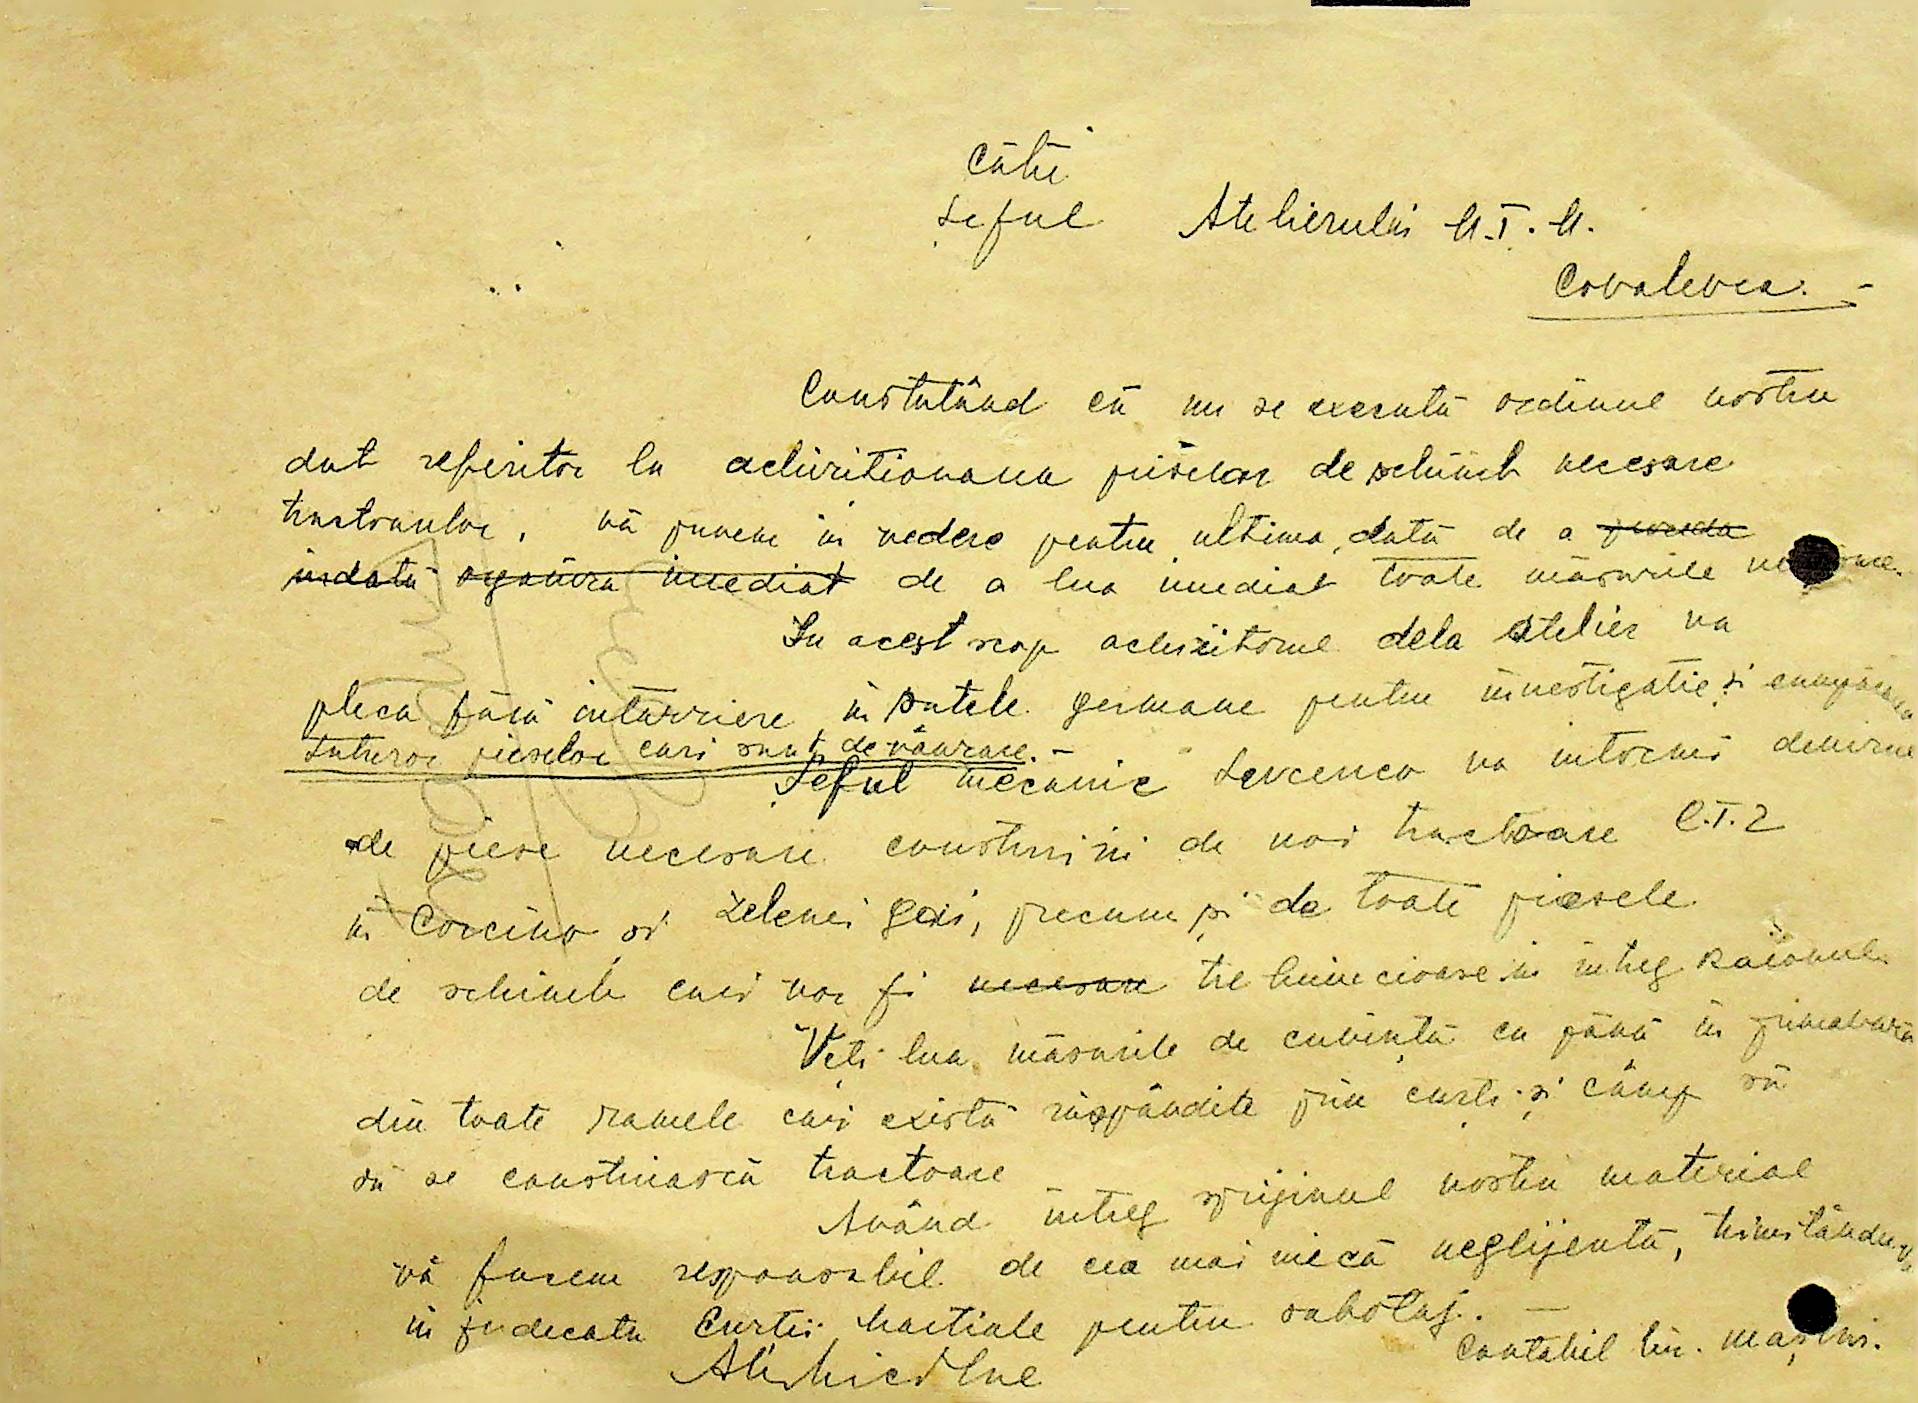 Către
Șeful Atelierului U.T.M.
Covalevca. -
Constatând că nu se execută ordinul nostru
dat referitor la achizitionarea pieselor de schimb necesare
tractoarelor, vă punem în vedere pentru ultima dată de a
îndată organiza imediat de a lua imediat toate măsurile
In acest scop achizitorul dela atelier va
pleca fără întârziere în satele germane pentru investigatie și cumpărarea
tuturor pieselor cari sunt de vânzare. -
Șeful mecanic Sevcenco va întocmi
de piese necesare construirii de noi tractoare C.T.2
în și precum și de toate piesele
de schimb cari vor fi necesare trebuincioase în întreg Raionul
Veți lua măsurile de cuviință ca până în primăvară
din toate ramele cari există răspândite prin curți și câmp să
să se construiască tractoare
Având întreg sprijinul nostru material
vă facem responsabil de cea mai mică neglijență, trimitându-vă
în judecata Curtii Martiale pentru sabotaj. -
Contabil